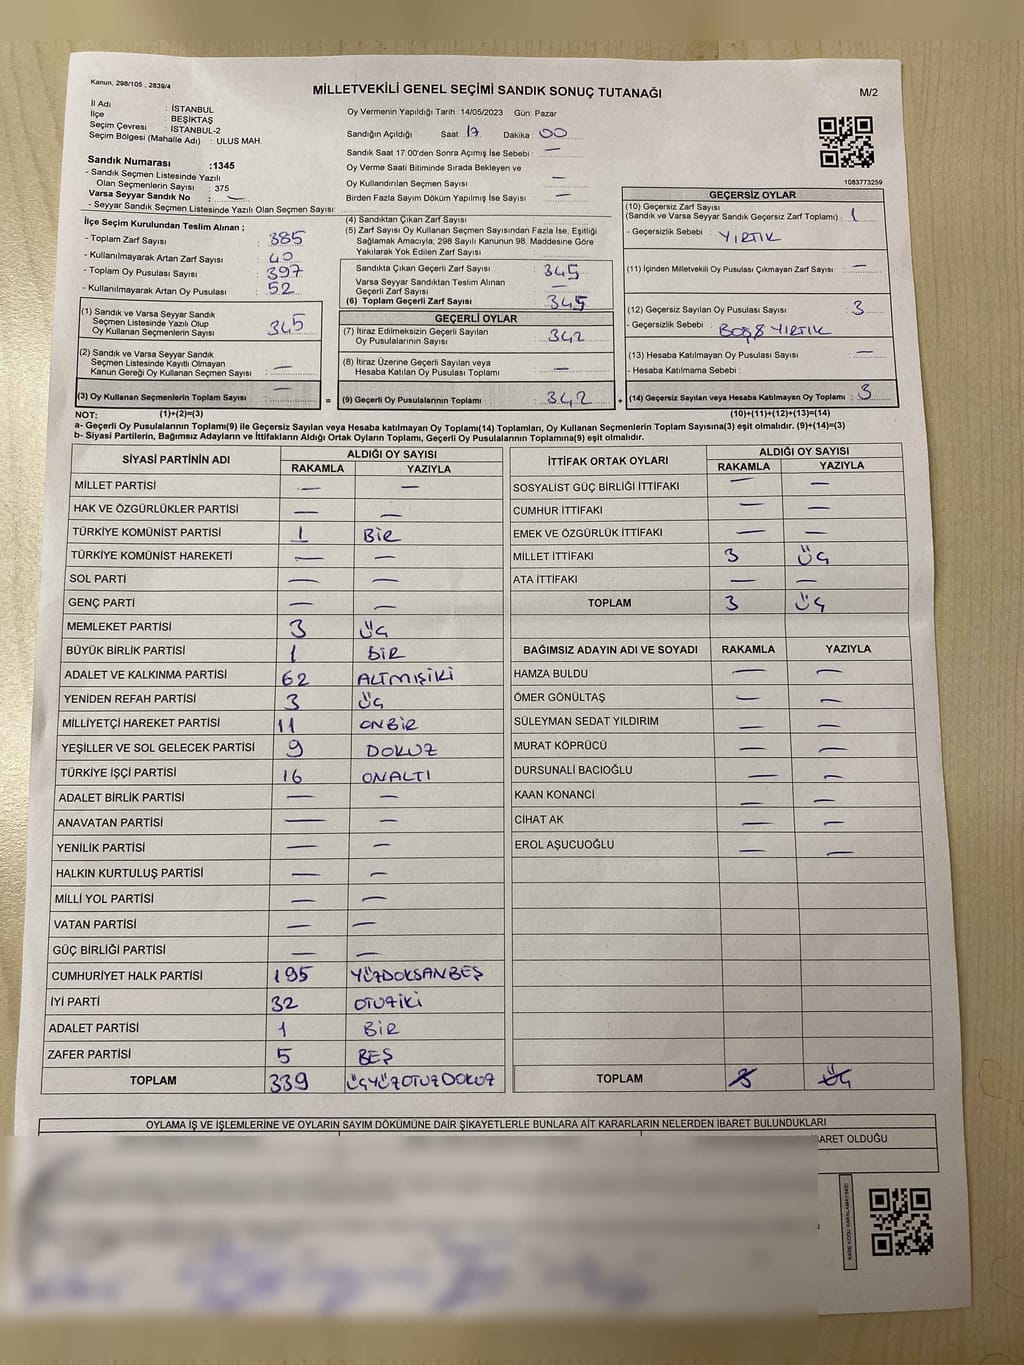 Kanun, 298/105 , 2839/4
MİLLETVEKİLİ GENEL SEÇİMİ SANDIK SONUÇ TUTANAĞI
M/2
İl Adı : İSTANBUL
İlçe : BEŞİKTAŞ
Seçim Çevresi : İSTANBUL-2
Seçim Bölgesi (Mahalle Adı) : ULUS MAH.
Sandık Numarası :1345
- Sandık Seçmen Listesinde Yazılı
Olan Seçmenlerin Sayısı : 375
Varsa Seyyar Sandık No : —
- Seyyar Sandık Seçmen Listesinde Yazılı Olan Seçmen Sayısı:
Oy Vermenin Yapıldığı Tarih :14/05/2023 Gün Pazar
Sandığın Açıldığı Saat: 17 Dakika : 00
Sandık Saat 17:00'den Sonra Açımış İse Sebebi : —
Oy Verme Saati Bitiminde Sırada Bekleyen ve
Oy Kullandırılan Seçmen Sayısı : —
Birden Fazla Sayım Döküm Yapılmış İse Sayısı : —
1083773259
İlçe Seçim Kurulundan Teslim Alınan ;
- Toplam Zarf Sayısı : 385
- Kullanılmayarak Artan Zarf Sayısı : 40
- Toplam Oy Pusulası Sayısı : 397
- Kullanılmayarak Artan Oy Pusulası : 52
(1) Sandık ve Varsa Seyyar Sandık
Seçmen Listesinde Yazılı Olup
Oy Kullanan Seçmenlerin Sayısı : 345
(2) Sandık ve Varsa Seyyar Sandık
Seçmen Listesinde Kayıtlı Olmayan
Kanun Gereği Oy Kullanan Seçmen Sayısı : —
(3) Oy Kullanan Seçmenlerin Toplam Sayısı : —
=
(4) Sandıktan Çıkan Zarf Sayısı :
(5) Zarf Sayısı Oy Kullanan Seçmen Sayısından Fazla İse, Eşitliği
Sağlamak Amacıyla, 298 Sayılı Kanunun 98. Maddesine Göre
Yakılarak Yok Edilen Zarf Sayısı :
Sandıkta Çıkan Geçerli Zarf Sayısı : 345
Varsa Seyyar Sandıktan Teslim Alınan
Geçerli Zarf Sayısı : —
(6) Toplam Geçerli Zarf Sayısı : 345
GEÇERLİ OYLAR
(7) İtiraz Edilmeksizin Geçerli Sayılan
Oy Pusulalarının Sayısı : 342
(8) İtiraz Üzerine Geçerli Sayılan veya
Hesaba Katılan Oy Pusulası Toplamı : —
(9) Geçerli Oy Pusulalarının Toplamı : 342
+
GEÇERSİZ OYLAR
(10) Geçersiz Zarf Sayısı
(Sandık ve Varsa Seyyar Sandık Geçersiz Zarf Toplamı) : 1
- Geçersizlik Sebebi : YIRTIK
(11) İçinden Milletvekili Oy Pusulası Çıkmayan Zarf Sayısı : —
(12) Geçersiz Sayılan Oy Pusulası Sayısı : 3
- Geçersizlik Sebebi : BOŞ & YIRTIK
(13) Hesaba Katılmayan Oy Pusulası Sayısı : —
- Hesaba Katılmama Sebebi :
(14) Geçersiz Sayılan veya Hesaba Katılmayan Oy Toplamı : 3
NOT: (1)+(2)=(3) (10)+(11)+(12)+(13)=(14)
a- Geçerli Oy Pusulalarının Toplamı(9) ile Geçersiz Sayılan veya Hesaba Katılmayan Oy Toplamı(14) Toplamları, Oy Kullanan Seçmenlerin Toplam Sayısına(3) eşit olmalıdır. (9)+(14)=(3)
b- Siyasi Partilerin, Bağımsız Adayların ve İttifakların Aldığı Ortak Oyların Toplamı, Geçerli Oy Pusulalarının Toplamına(9) eşit olmalıdır.
SİYASİ PARTİNİN ADI ALDIĞI OY SAYISI
RAKAMLA YAZIYLA
MİLLET PARTİSİ — —
HAK VE ÖZGÜRLÜKLER PARTİSİ — —
TÜRKİYE KOMÜNİST PARTİSİ 1 BİR
TÜRKİYE KOMÜNİST HAREKETİ — —
SOL PARTİ — —
GENÇ PARTİ — —
MEMLEKET PARTİSİ 3 ÜÇ
BÜYÜK BİRLİK PARTİSİ 1 BİR
ADALET VE KALKINMA PARTİSİ 62 ALTMIŞİKİ
YENİDEN REFAH PARTİSİ 3 ÜÇ
MİLLİYETÇİ HAREKET PARTİSİ 11 ONBİR
YEŞİLLER VE SOL GELECEK PARTİSİ 9 DOKUZ
TÜRKİYE İŞÇİ PARTİSİ 16 ONALTI
ADALET BİRLİK PARTİSİ — —
ANAVATAN PARTİSİ — —
YENİLİK PARTİSİ — —
HALKIN KURTULUŞ PARTİSİ — —
MİLLİ YOL PARTİSİ — —
VATAN PARTİSİ — —
GÜÇ BİRLİĞİ PARTİSİ — —
CUMHURİYET HALK PARTİSİ 195 YÜZDOKSANBEŞ
İYİ PARTİ 32 OTUZİKİ
ADALET PARTİSİ 1 BİR
ZAFER PARTİSİ 5 BEŞ
TOPLAM 339 ÜÇYÜZOTUZDOKUZ
İTTİFAK ORTAK OYLARI ALDIĞI OY SAYISI
RAKAMLA YAZIYLA
SOSYALİST GÜÇ BİRLİĞİ İTTİFAKI — —
CUMHUR İTTİFAKI — —
EMEK VE ÖZGÜRLÜK İTTİFAKI — —
MİLLET İTTİFAKI 3 ÜÇ
ATA İTTİFAKI — —
TOPLAM 3 ÜÇ
BAĞIMSIZ ADAYIN ADI VE SOYADI RAKAMLA YAZIYLA
HAMZA BULDU — —
ÖMER GÖNÜLTAŞ — —
SÜLEYMAN SEDAT YILDIRIM — —
MURAT KÖPRÜCÜ — —
DURSUNALİ BACIOĞLU — —
KAAN KONANCİ — —
CİHAT AK — —
EROL AŞUCUOĞLU — —
TOPLAM 3 ÜÇ
OYLAMA İŞ VE İŞLEMLERİNE VE OYLARIN SAYIM DÖKÜMÜNE DAİR ŞİKAYETLERLE BUNLARA AİT KARARLARIN NELERDEN İBARET BULUNDUKLARI
BARET OLDUĞU
KARE KODU KARALAMAYINIZ!